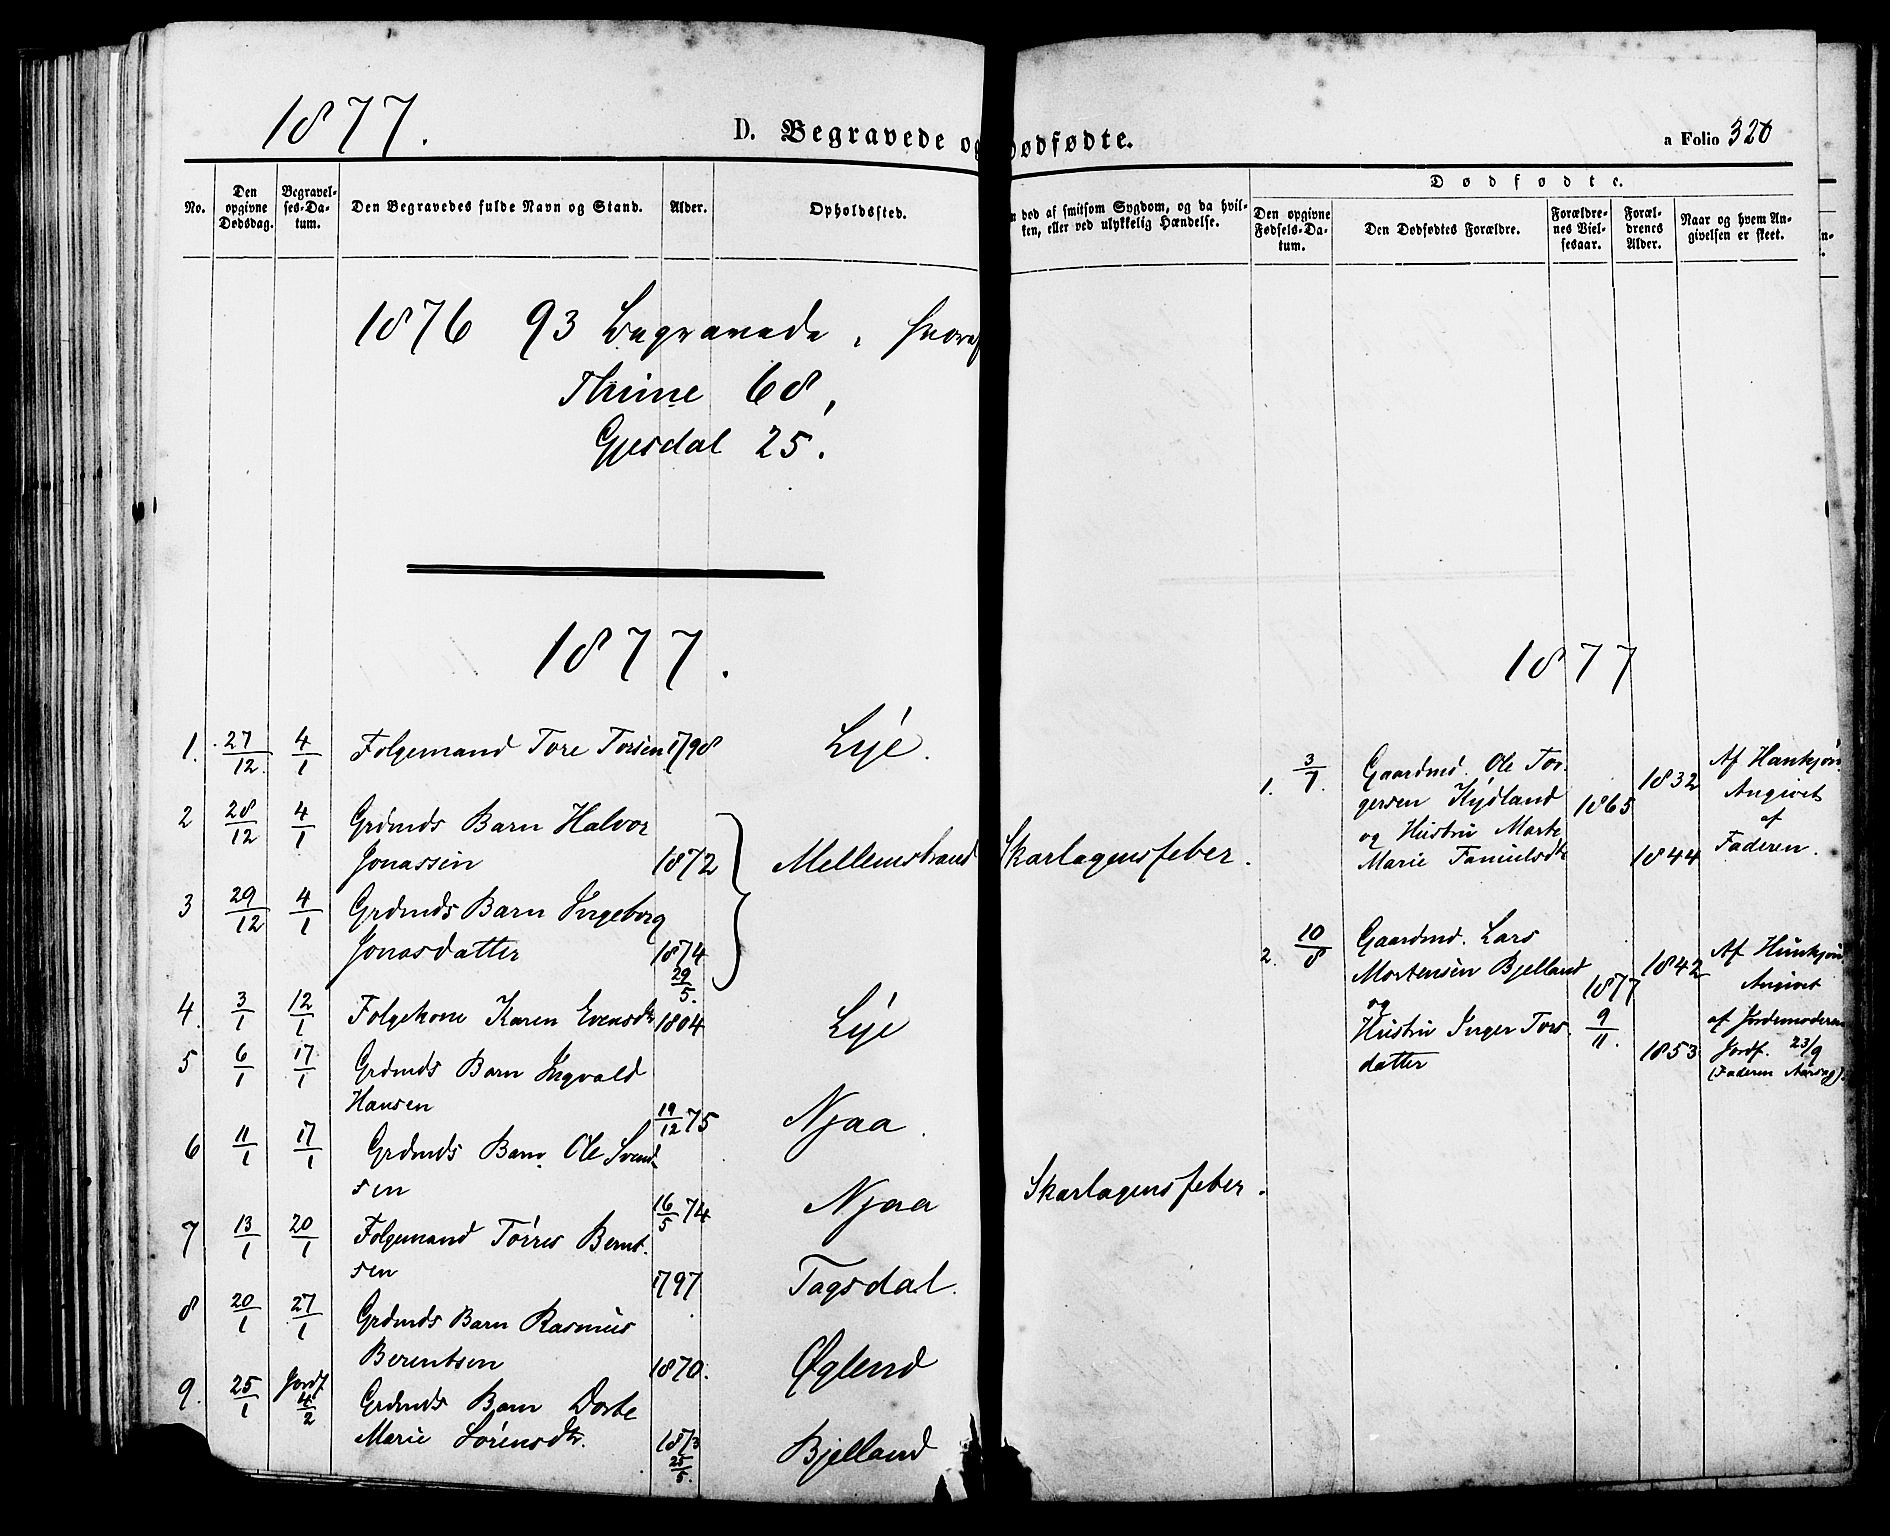 1877.
D. Begravede og Dødfødte.
a Folio 320
No.
Den opgivne Dødsdag.
Begravelses-Datum.
Den Begravedes fulde Navn og Stand.
Alder.
Opholdssted.
n død af smitsom Sygdom, og da hvilken, eller ved ulykkelig Hændelse.
Dødfødte.
Den opgivne Fødsels-Datum.
Den Dødfødtes Forældre.
Forældrenes Vielsesaar.
Forældrenes Alder.
Naar og hvem Angivelsen er skeet.
1876 93 Begravede, hvoraf
Thime 68,
Gjesdal 25.
1877.
1. 27/12. 4/1 Folgemand Tore Torsen 1798 Lye.
2 28/12 4/1 Grdmds Barn Halvor
Jonassen 1872 Mellemstrand Skarlagensfeber.
3 29/12 4/1 Grdmds Barn Ingeborg
Jonasdatter 1874 29/5.
4. 3/1 12/1 Folgekone Karen Evensdtr 1804 Lye
5 6/1 17/1 Grdmds Barn Ingvald
Hansen 19/12 75 Njaa.
6 11/1 17/1 Grdmds Barn Ole Svend-
sen 16/5 74 Njaa Skarlagensfeber.
7 13/1 20/1 Folgemand Tørres Bernt-
sen 1797 Tagsdal.
8 20/1 27/1 Grdmds Barn Rasmus
Berentsen 1870. Øglend
9. 25/1 Jordf 4/2 Grdmds Barn Dorte
Marie Sørensdtr. 1873 25/5. Bjelland
1877
1. 3/7. Gaardmd. Ole Tor-
gersen Kydland
og Hustru Marte
Marie
1865
1832
1844
Af Hankjøn.
Angivet
af
Faderen.
2. 10/8 Gaardmd. Lars
Mortensen Bjelland
og
Hustru Inger Tors-
datter
1877
9/11.
1842
1853
Af Hunkjøn
Angivet
af Jordemoderen
Jordf. 23/9
(Faderen